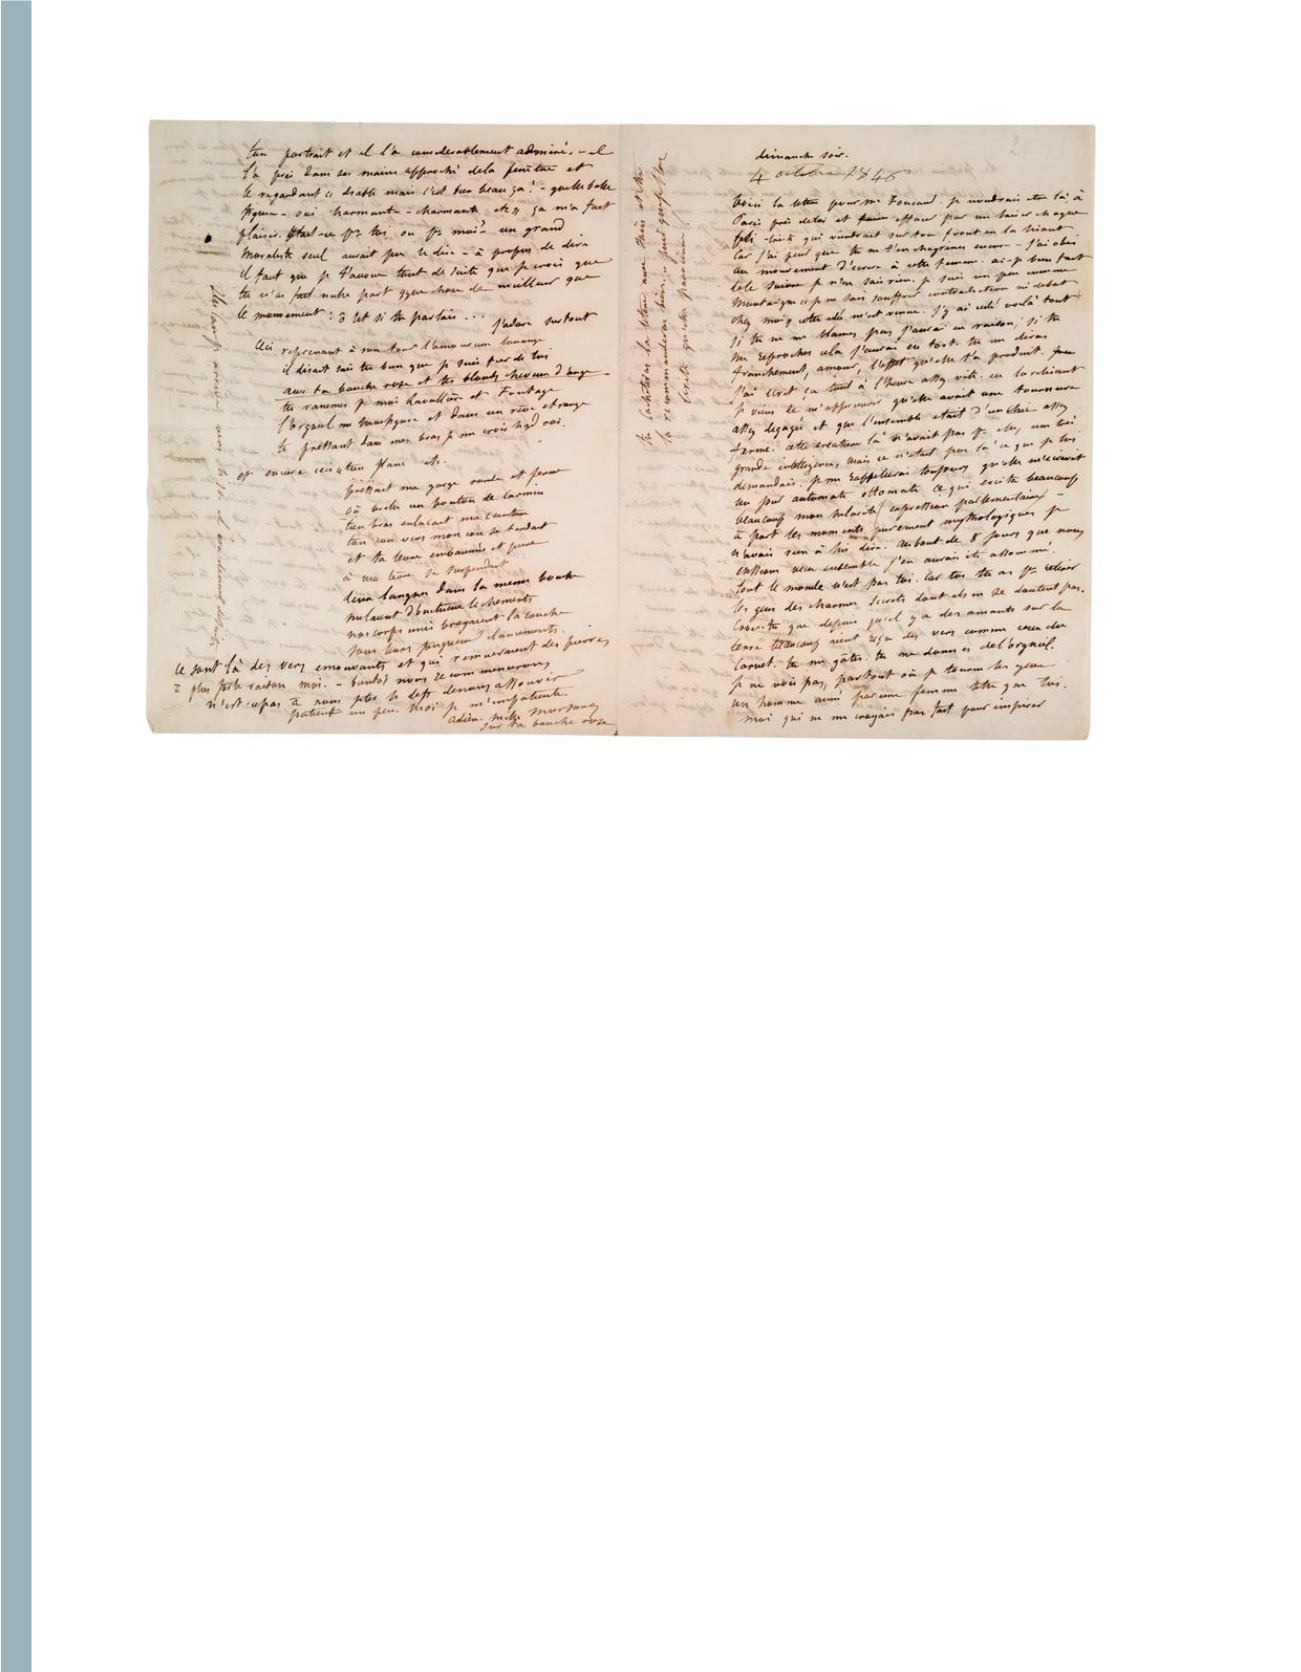 dimanche soir.
4 octobre 1846
Voici la lettre pour Mme Foucaud. je voudrais être là à
Paris près de toi et effacer par un baiser chaque
qui viendrait sur ton front en la lisant
car j'ai peur que tu ne t'en chagrines encore - j'ai obéi
au mouvement d'écrire à cette femme. ai-je bien fait
de le suivre je n'en sais rien. je suis un peu comme
Montaigne je ne sais souffrir contradiction ni debat
chez moi, cette idée m'est venue. j'y ai cédé voilà tout
si tu ne me blames pas j'aurai eu raison; si tu
me reproches cela j'aurai eu tort. tu me diras
franchement, amour, l'effet qu'elle t'a produit.
J'ai écrit ça tout à l'heure assez vite. en la relisant
je viens de m'apercevoir qu'elle avait une tournure
assez degagée et que l'ensemble etait d'un chic assez
ferme. cette creature là n'avait pas chez une très
grande intelligence, mais ce n'etait pas là ce que je lui
demandais. je me rappellerai toujours qu'elle m'ecrivit
un jour automate ottomate ce qui excita beaucoup
beaucoup mon hilarité (expression parlementaire) -
à part les moments purement mythologiques je
n'avais rien à lui dire. au bout de 8 jours que nous
eussions vécu ensemble j'en aurais été assommé.
tout le monde n'est pas toi. car toi tu as pr attirer
les gens des charmes secrets dont ils ne se doutent pas.
Crois-tu que depuis qu'il y a des amants sur la
terre beaucoup aient reçu des vers comme ceux du
Carnet. tu me gâtes. tu me donnes de l'orgueil.
je ne vois pas, partout où je tourne les yeux
un homme aimé par une femme telle que toi.
moi qui ne me croyais pas fait pour inspirer
tu cacheteras la lettre avec trois
tu recommanderas bien
sorte qu'elle parvienne.
ton portrait et il l'a considerablement admiré. - il
l'a pris dans ses mains approché de la fenêtre et
le regardant ah diable mais c'est bien beau ça! - quelle belle
figure - oui charmante - charmante, ça m'a fait
plaisir. etait-ce pr toi ou pr moi? un grand
moraliste seul aurait pu le dire - à propos de dire
il faut que je t'avoue tout de suite que je crois que
tu n'as fait nulle part qque chose de meilleur que
le mouvement: Et si tu parlais... j'adore surtout
reprenant à son tour l'amoureuse louange
il disait sais tu bien que je suis fier de toi
avec ta bouche rose et tes blonds cheveux d'ange
tu ranimes pr moi Lavallière et Fontange
l'orgueil me transfigure et dans un rêve étrange
te pressant dans mes bras je me crois le gd roi.
et encore ceci
pressait ma gorge ronde et ferme
où brille un bouton de carmin
ton bras enlaçait ma ceinture
ton cou vers mon cou se tendait
et ta lèvre embaumée et pure
à ma lèvre se suspendait
deux langues dans la même bouche
mêlaient d'onctueux lechements
nos corps unis broyaient la couche
sous leurs fougueux elancements.
ce sont là des vers emouvants et qui remueraient des pierres
à plus forte raison moi. - bientôt nous recommencerons
n'est-ce pas à nous
patiente un peu. moi je m'impatiente.
adieu. mille morsures
sur ta bouche rose